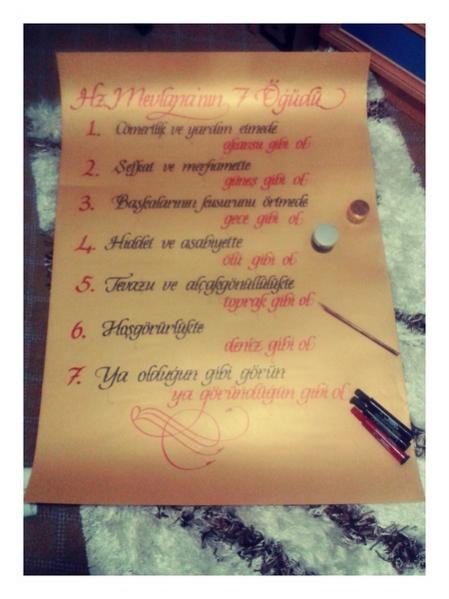 Hz. Mevlana'nın 7 Öğüdü
1. Cömertlik ve yardım etmede
akarsu gibi ol
2. Şefkat ve merhamette
güneş gibi ol
3. Başkalarının kusurunu örtmede
gece gibi ol
4. Hiddet ve asabiyette
ölü gibi ol
5. Tevazu ve alçakgönüllülükte
toprak gibi ol
6. Hoşgörürlükte
deniz gibi ol
7. Ya olduğun gibi görün
ya göründüğün gibi ol